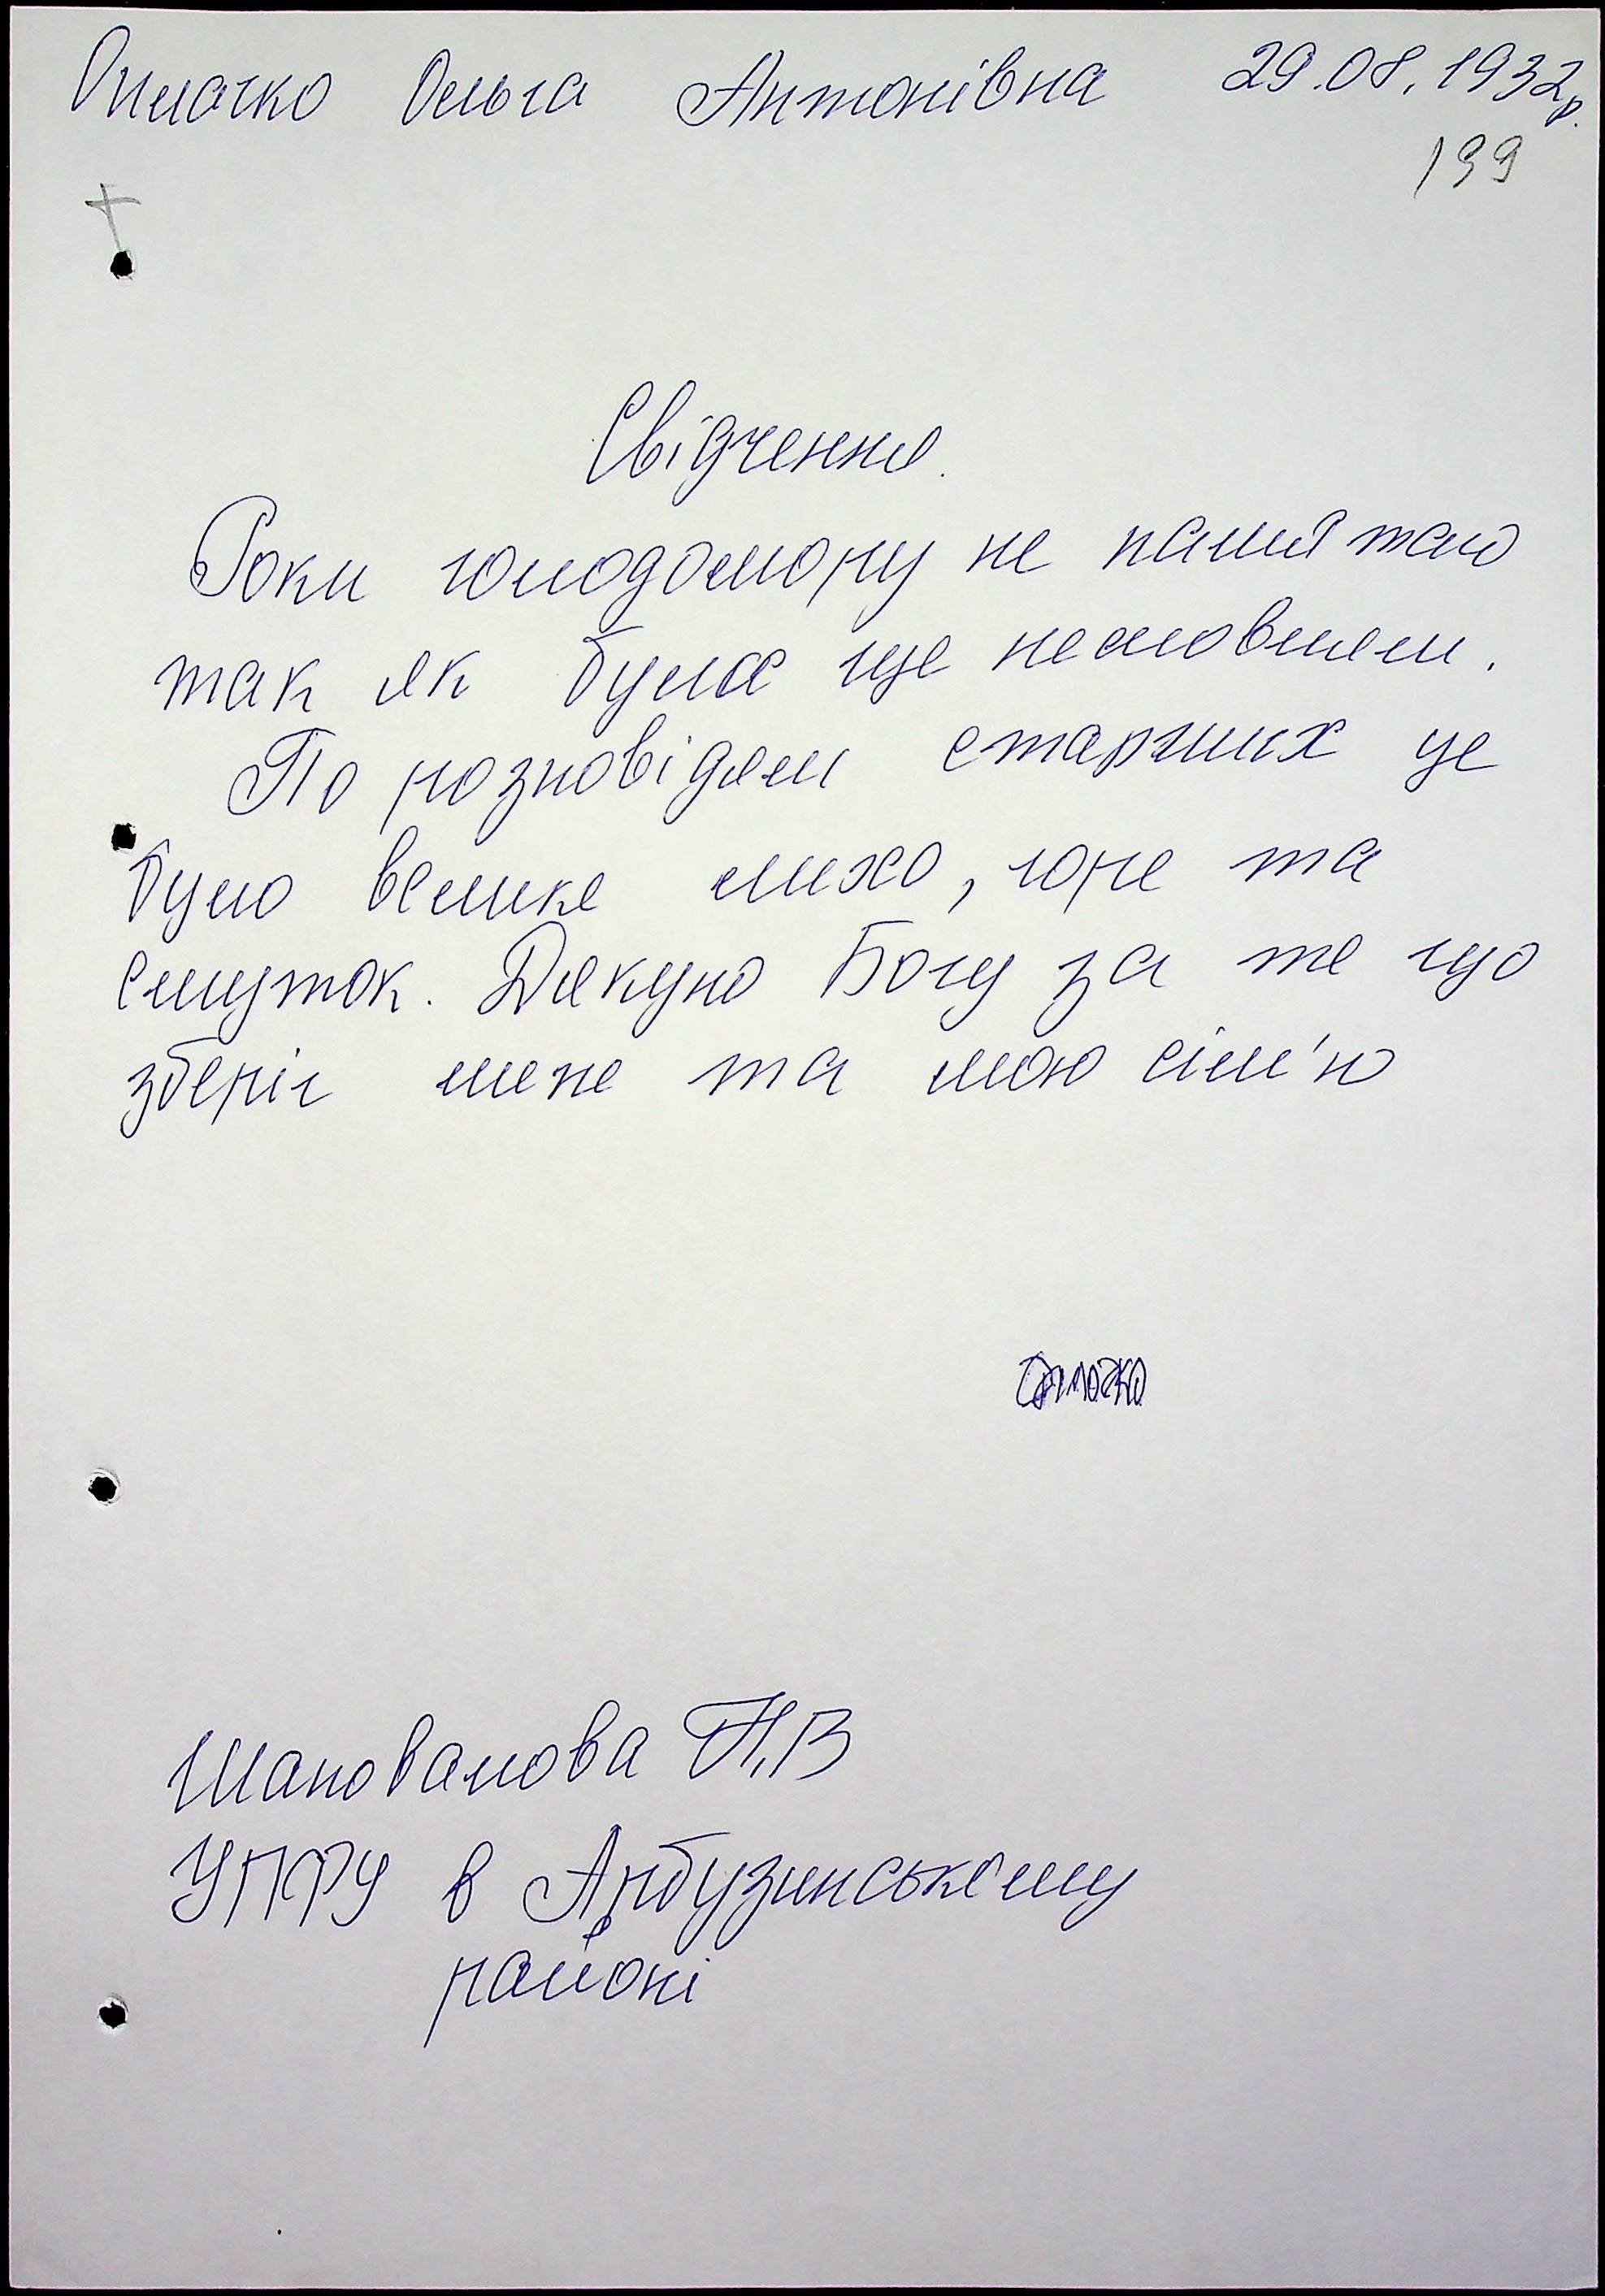 Опмачко Ольга Антонівна 29.08.1932р.
199
Свідчення.
Роки голодомору не памятаю
так як була ще немовлям.
По розповідям старших це
було велике лихо, горе та
смуток. Дякую Богу за те що
зберіг мене та мою сім'ю
Шаповалова Н.В
УПФУ в Арбузинському
районі